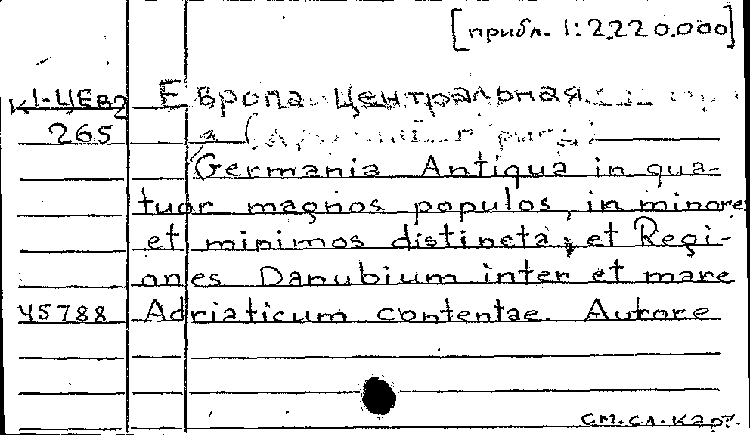 [прибл. 1:2.220.000]
К1-ЦЕв2 Европа Центральная
265
Germania Antiqua in qua-
tuor magnos populos, in minore
et minimos distincta, et Regi-
ones Danubium inter et mare
45788 Adriaticum contentae. Autore
см. сл. карт.